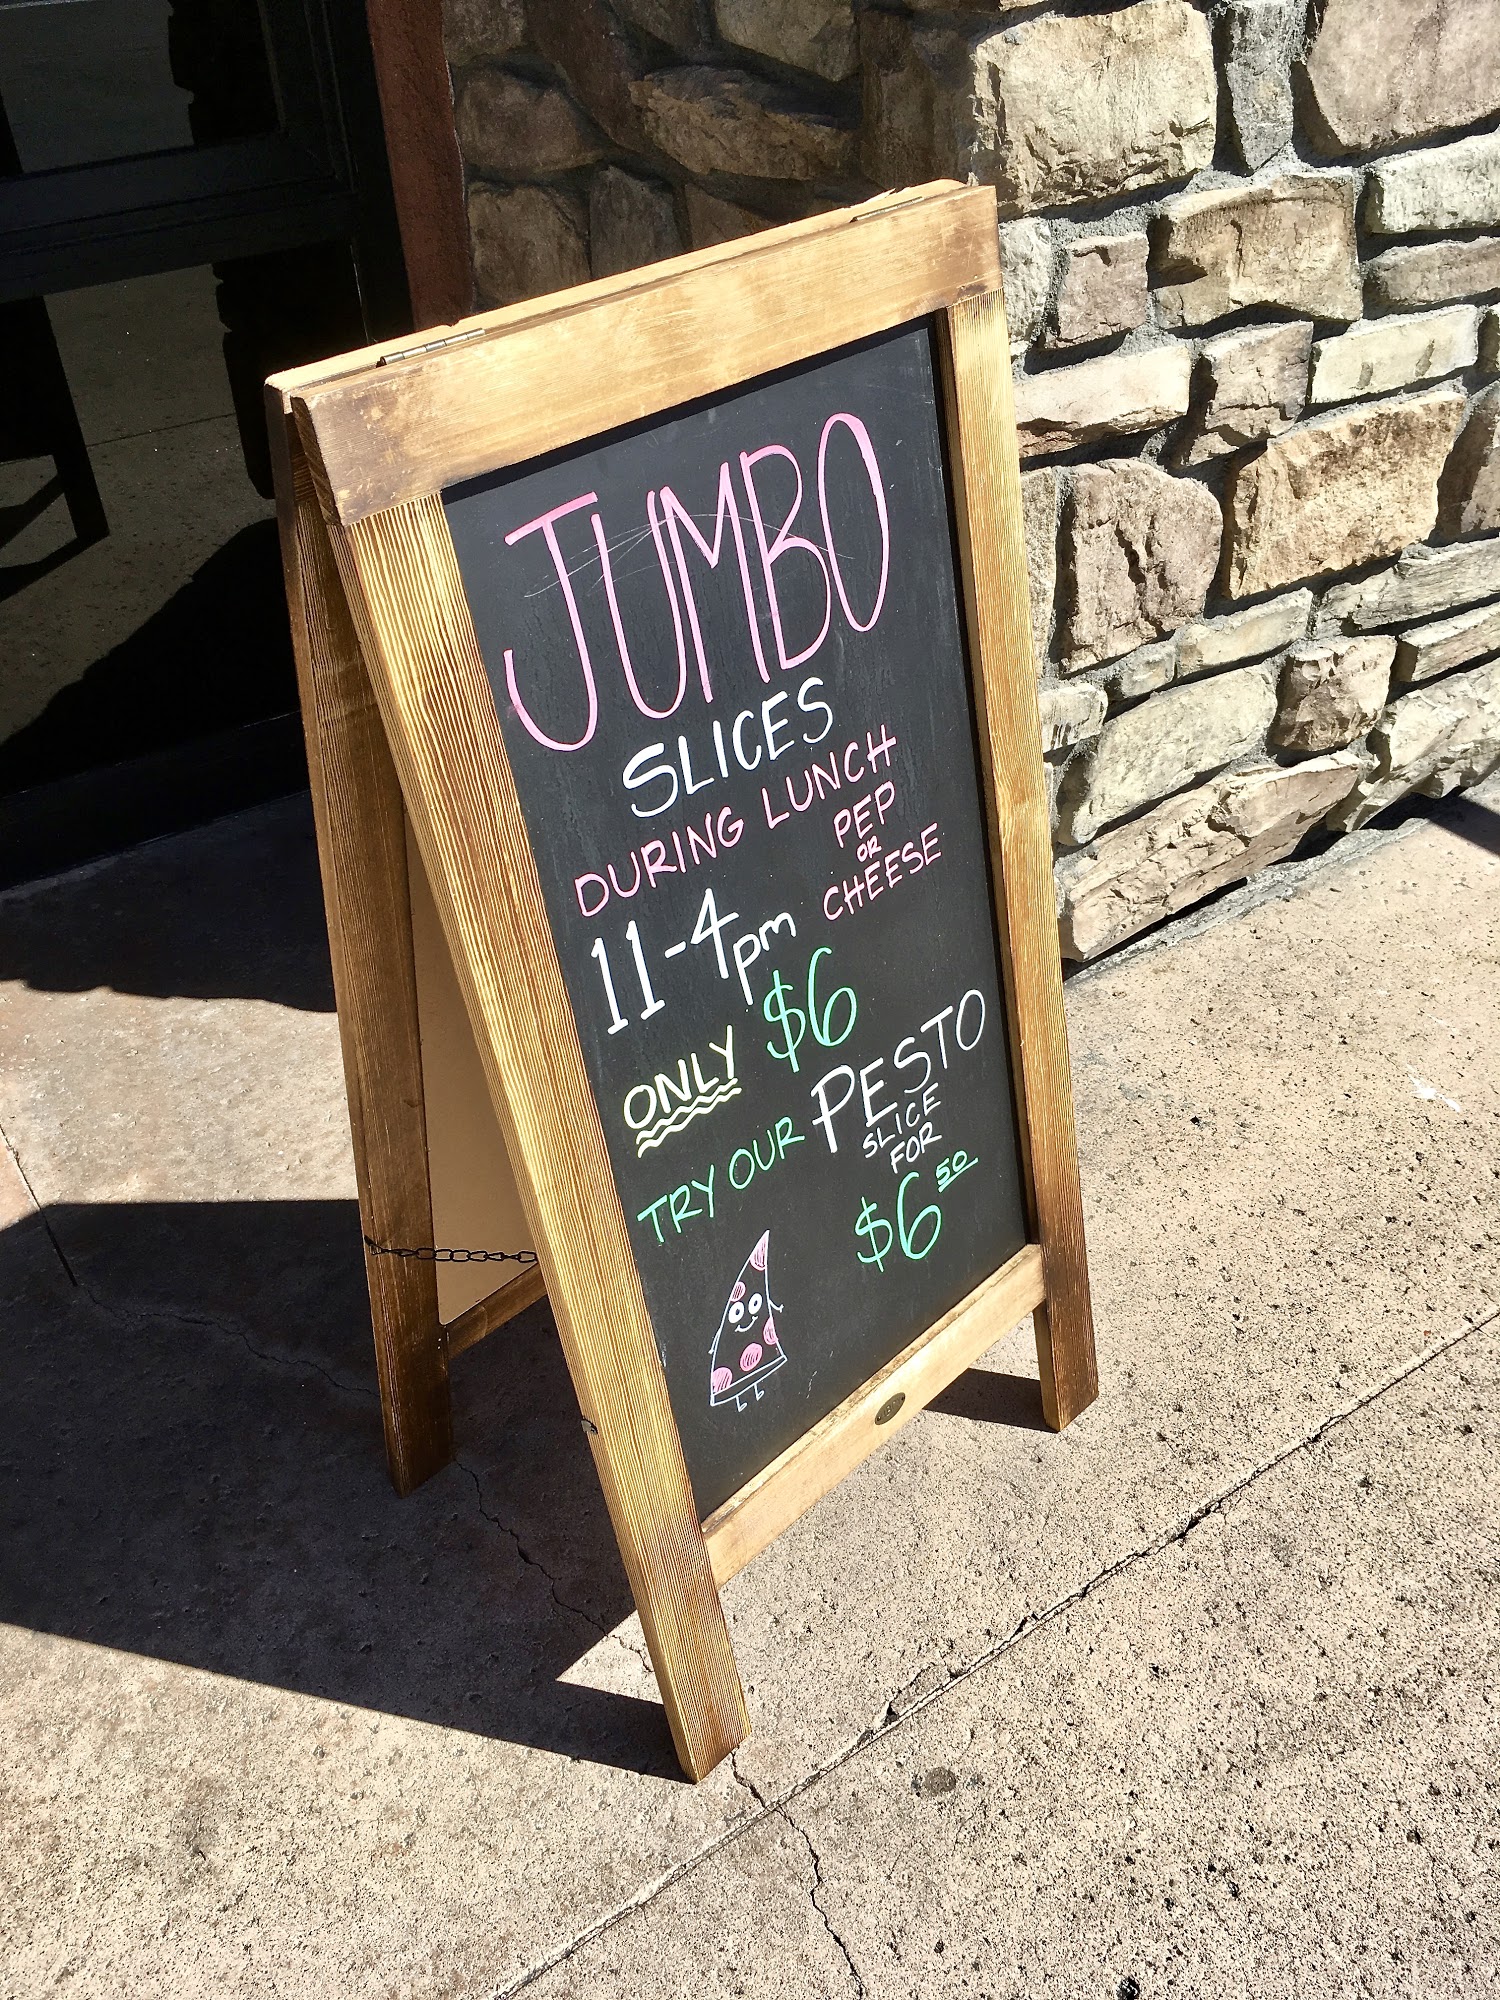 JUMBO
SLICES
DURING LUNCH
11-4pm
PEP
OR
CHEESE
ONLY $6
TRY OUR PESTO
SLICE
FOR
$6 50